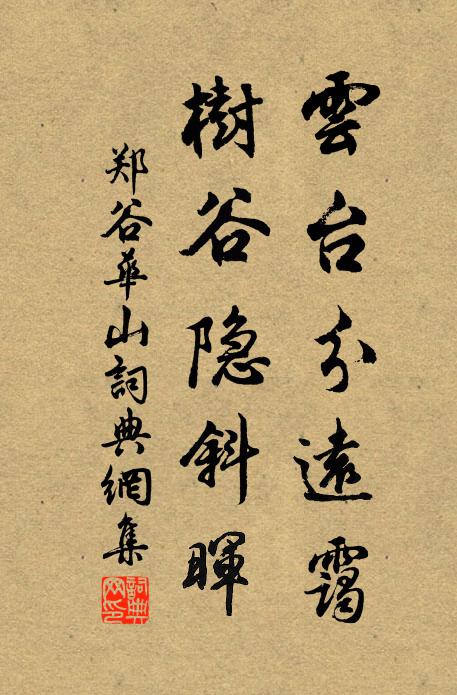 雲台分遠靄
樹谷隐斜暉
郑谷華山詞典網集
詞典网印